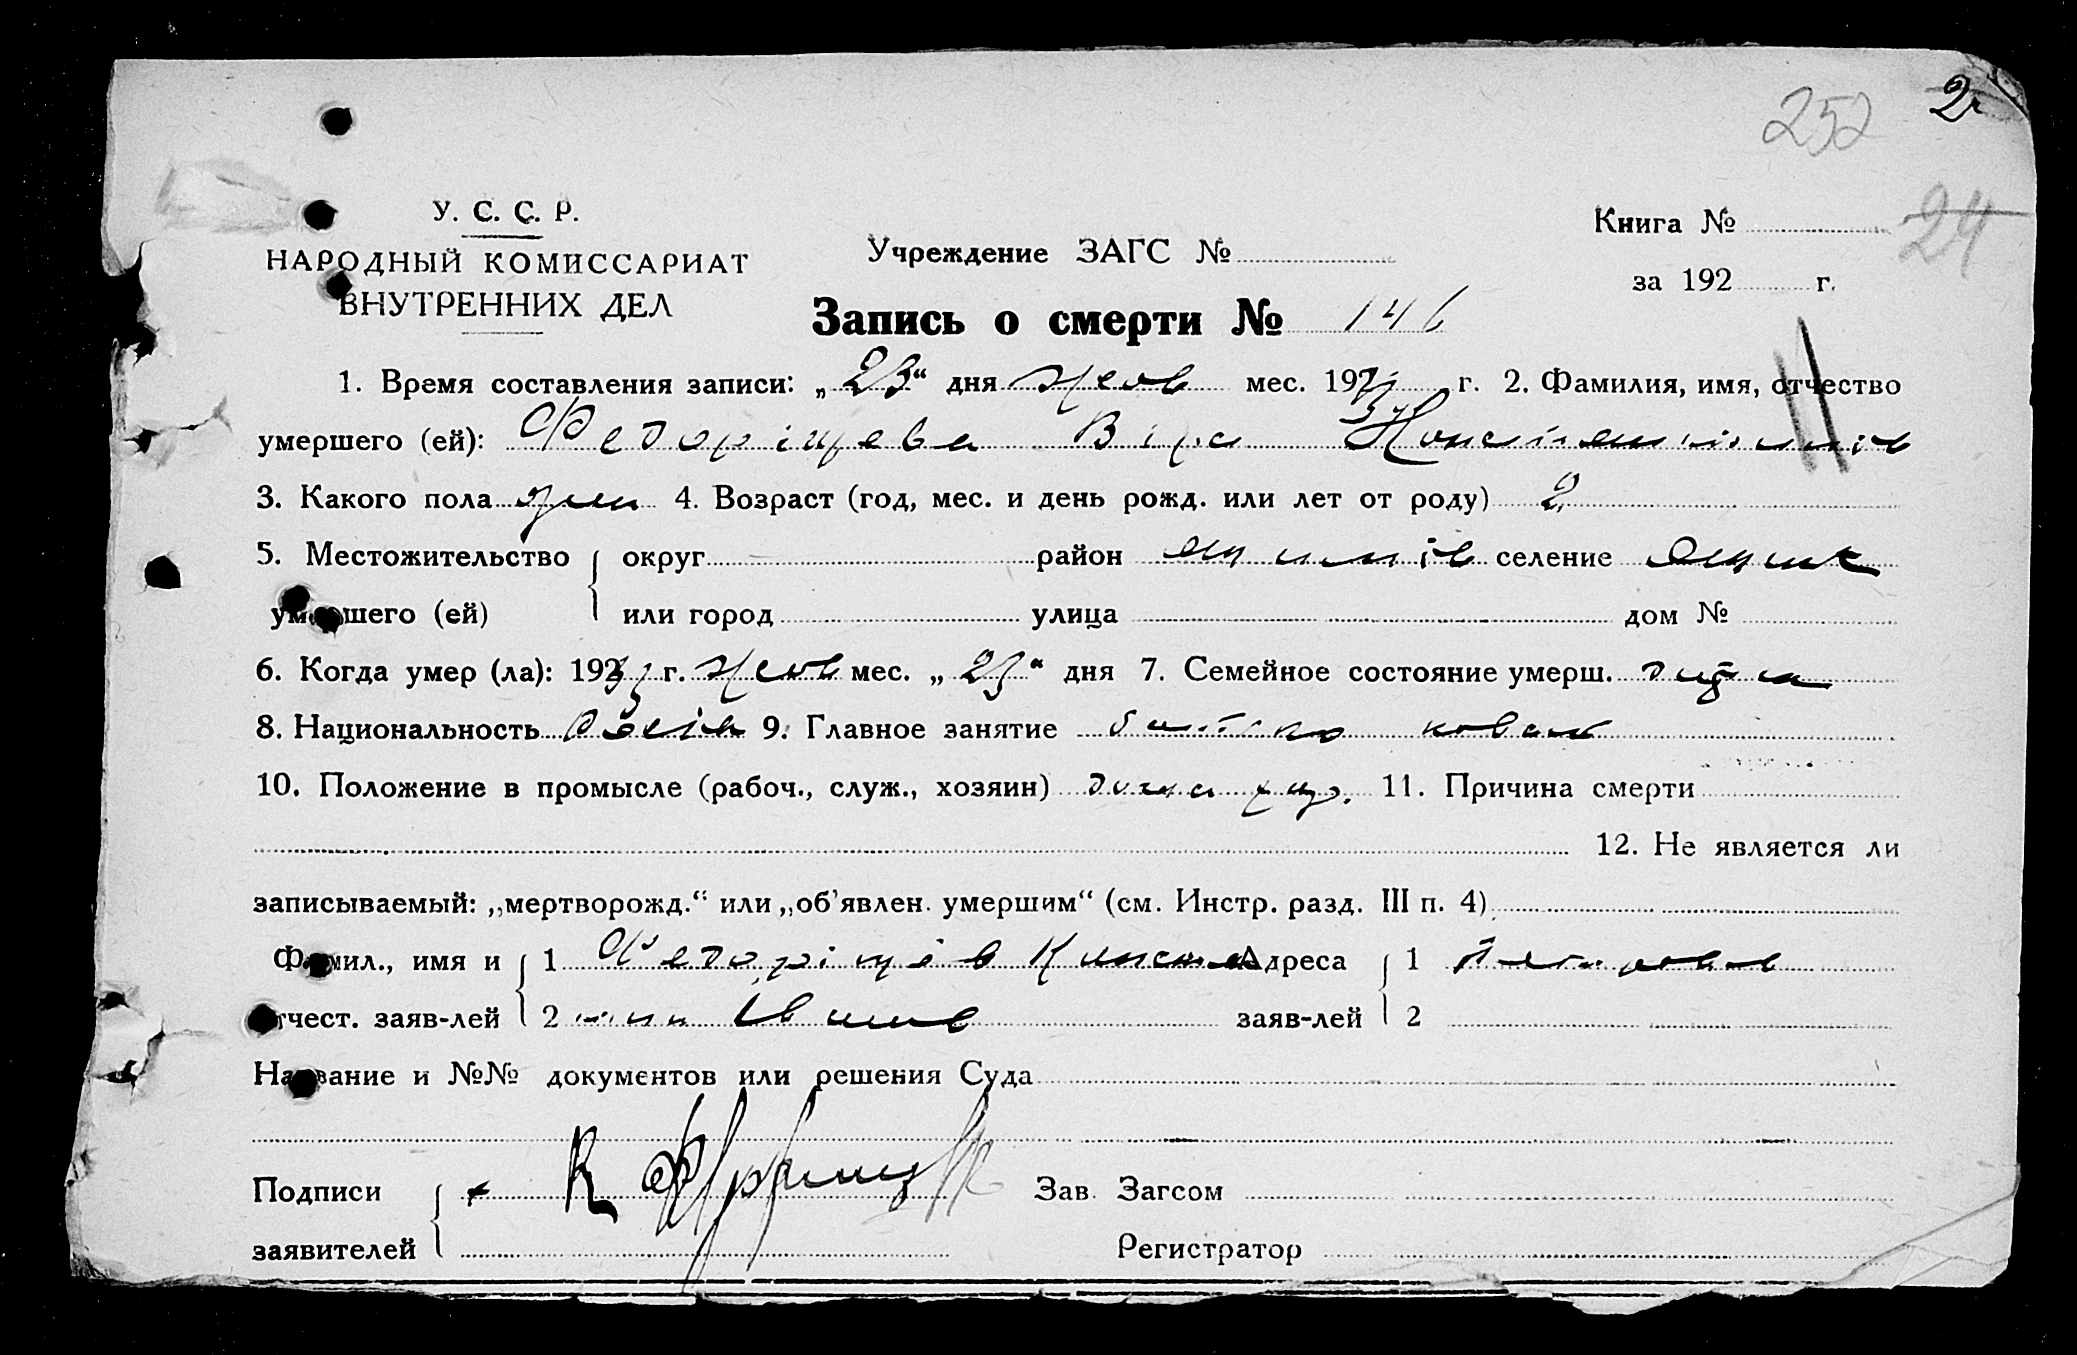 252 2
24
У. С. С. Р.
НАРОДНЫЙ КОМИССАРИАТ
ВНУТРЕННИХ ДЕЛ
Учреждение ЗАГС №
Книга №
за 192 г.
Запись о смерти № 146
1. Время составления записи: „23“ дня жов мес. 193 г. 2. Фамилия, имя, отчество
умершего (ей): Федоріщева Віра
3. Какого пола жін 4. Возраст (год, мес. и день рожд. или лет от роду) 2
5. Местожительство округ район селение
умершего (ей) или город улица дом №
6. Когда умер (ла): 1933 г. жов мес. „23“ дня 7. Семейное состояние умерш. дитина
8. Национальность 9. Главное занятие батько коваль
10. Положение в промысле (рабоч., служ., хозяин) 11. Причина смерти
12. Не является ли
записываемый: „мертворожд.“ или „об’явлен. умершим“ (см. Инстр. разд. III п. 4)
Фамил., имя и 1 Федоріщев Конста Адреса 1
отчест. заяв-лей 2 нтин Іванов заяв-лей 2
Название и №№ документов или решения Суда
Подписи К Зав. Загсом
заявителей Регистратор